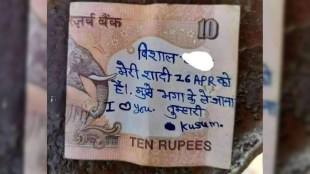 ज़र्व बैंक
10
विशाल
मेरी शादी 26 APR को
है। मुझे भगा के ले जाना
I ♡ you. तुम्हारी
Kusum.
TEN RUPEES